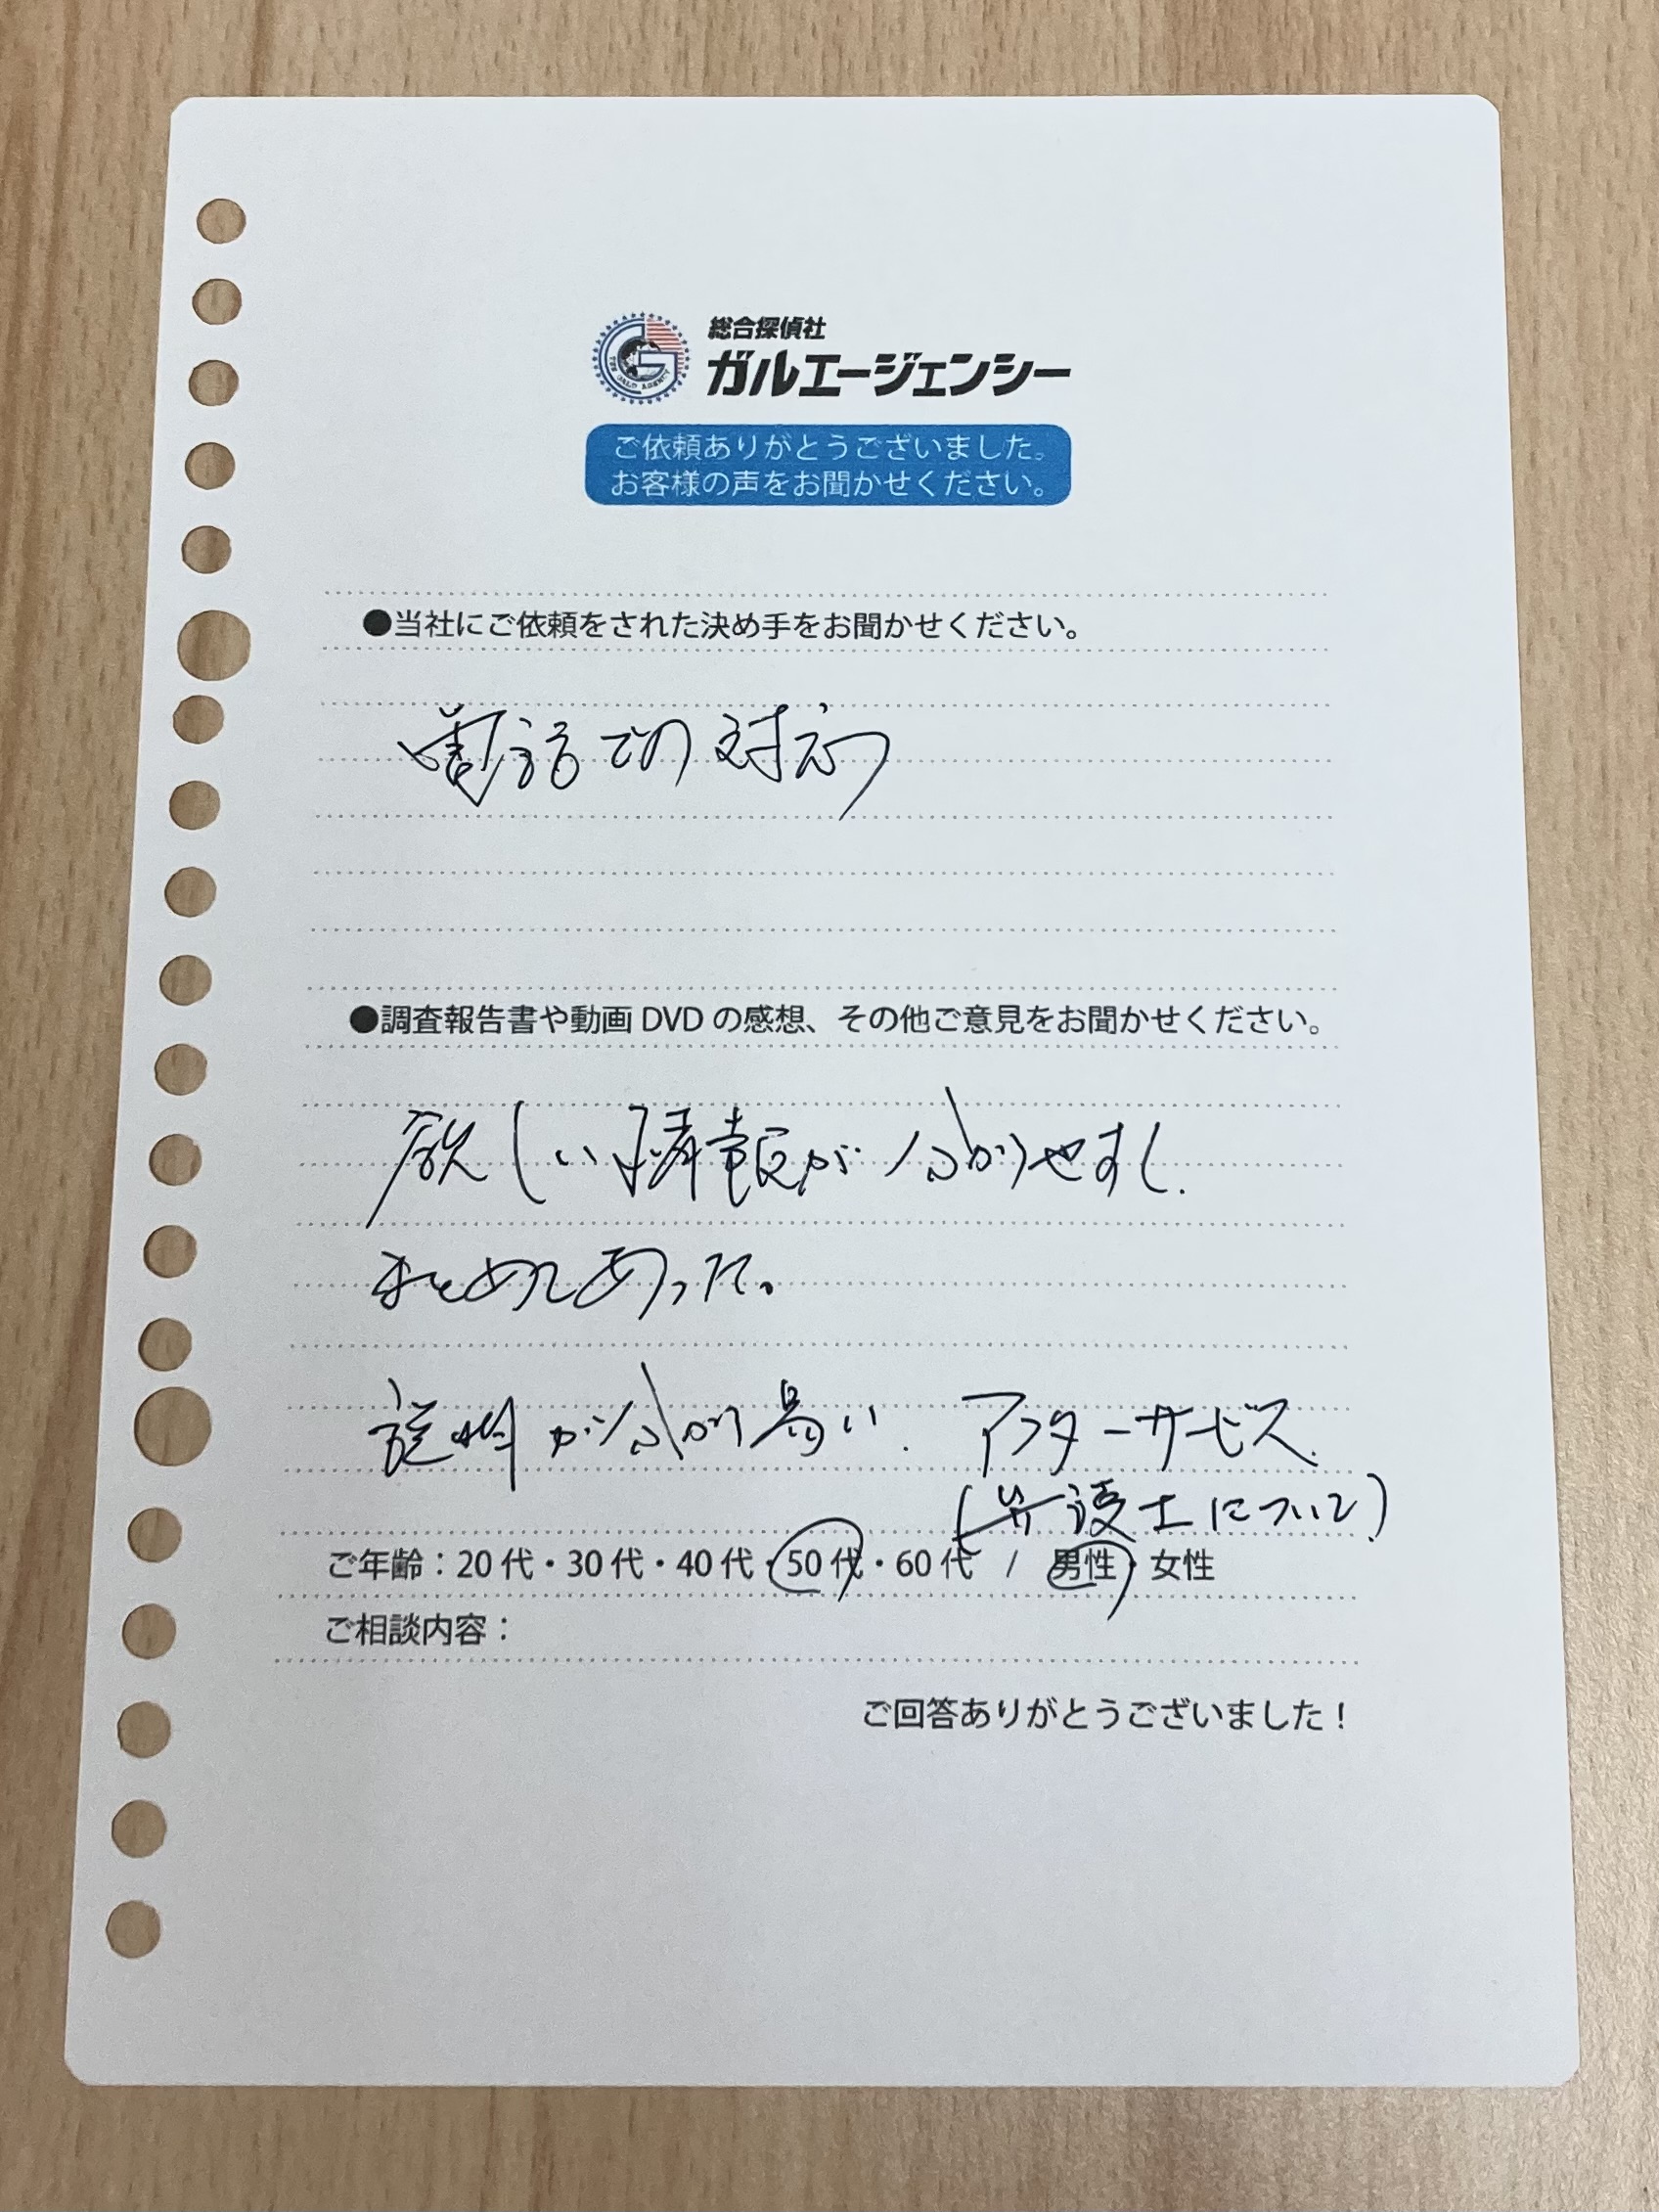 総合探偵社
ガルエージェンシー
ご依頼ありがとうございました。
お客様の声をお聞かせください。
●当社にご依頼をされた決め手をお聞かせください。
電話での対応
●調査報告書や動画DVDの感想、その他ご意見をお聞かせください。
欲しい情報が分かりやすく
まとめてあった。
説明が分かり易い. アフターサービス.
(弁護士について)
ご年齢:20代・30代・40代・50代・60代 / 男性・女性
ご相談内容:
ご回答ありがとうございました!